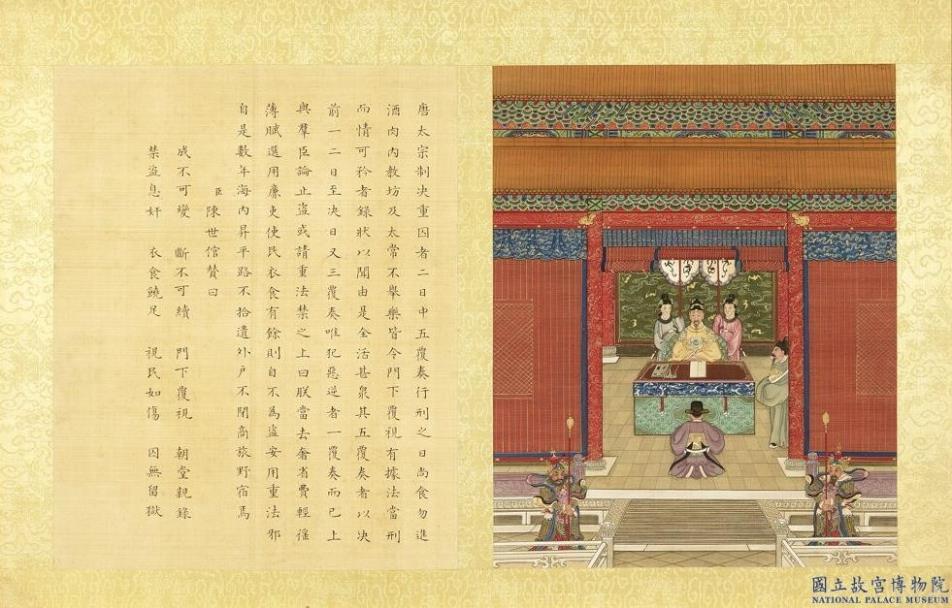 唐太宗制決重囚者二日中五覆奏行刑之日尚食勿進
酒肉內教坊及太常不舉樂皆令門下覆視有據法當刑
而情可矜者錄狀以聞由是全活甚眾其五覆奏者以决
前一二日至决日又三覆奏唯犯惡逆者一覆奏而已上
與羣臣論止盜或請重法禁之上曰朕當去奢省費輕徭
薄賦選用廉吏使民衣食有餘則自不為盜安用重法邪
自是數年海內昇平路不拾遺外户不閉商旅野宿焉
臣陳世倌贊曰
成不可變 斷不可續 門下覆視 朝堂親錄
禁盜息奸 衣食饒足 視民如傷 囚無留獄
國立故宮博物院
NATIONAL PALACE MUSEUM